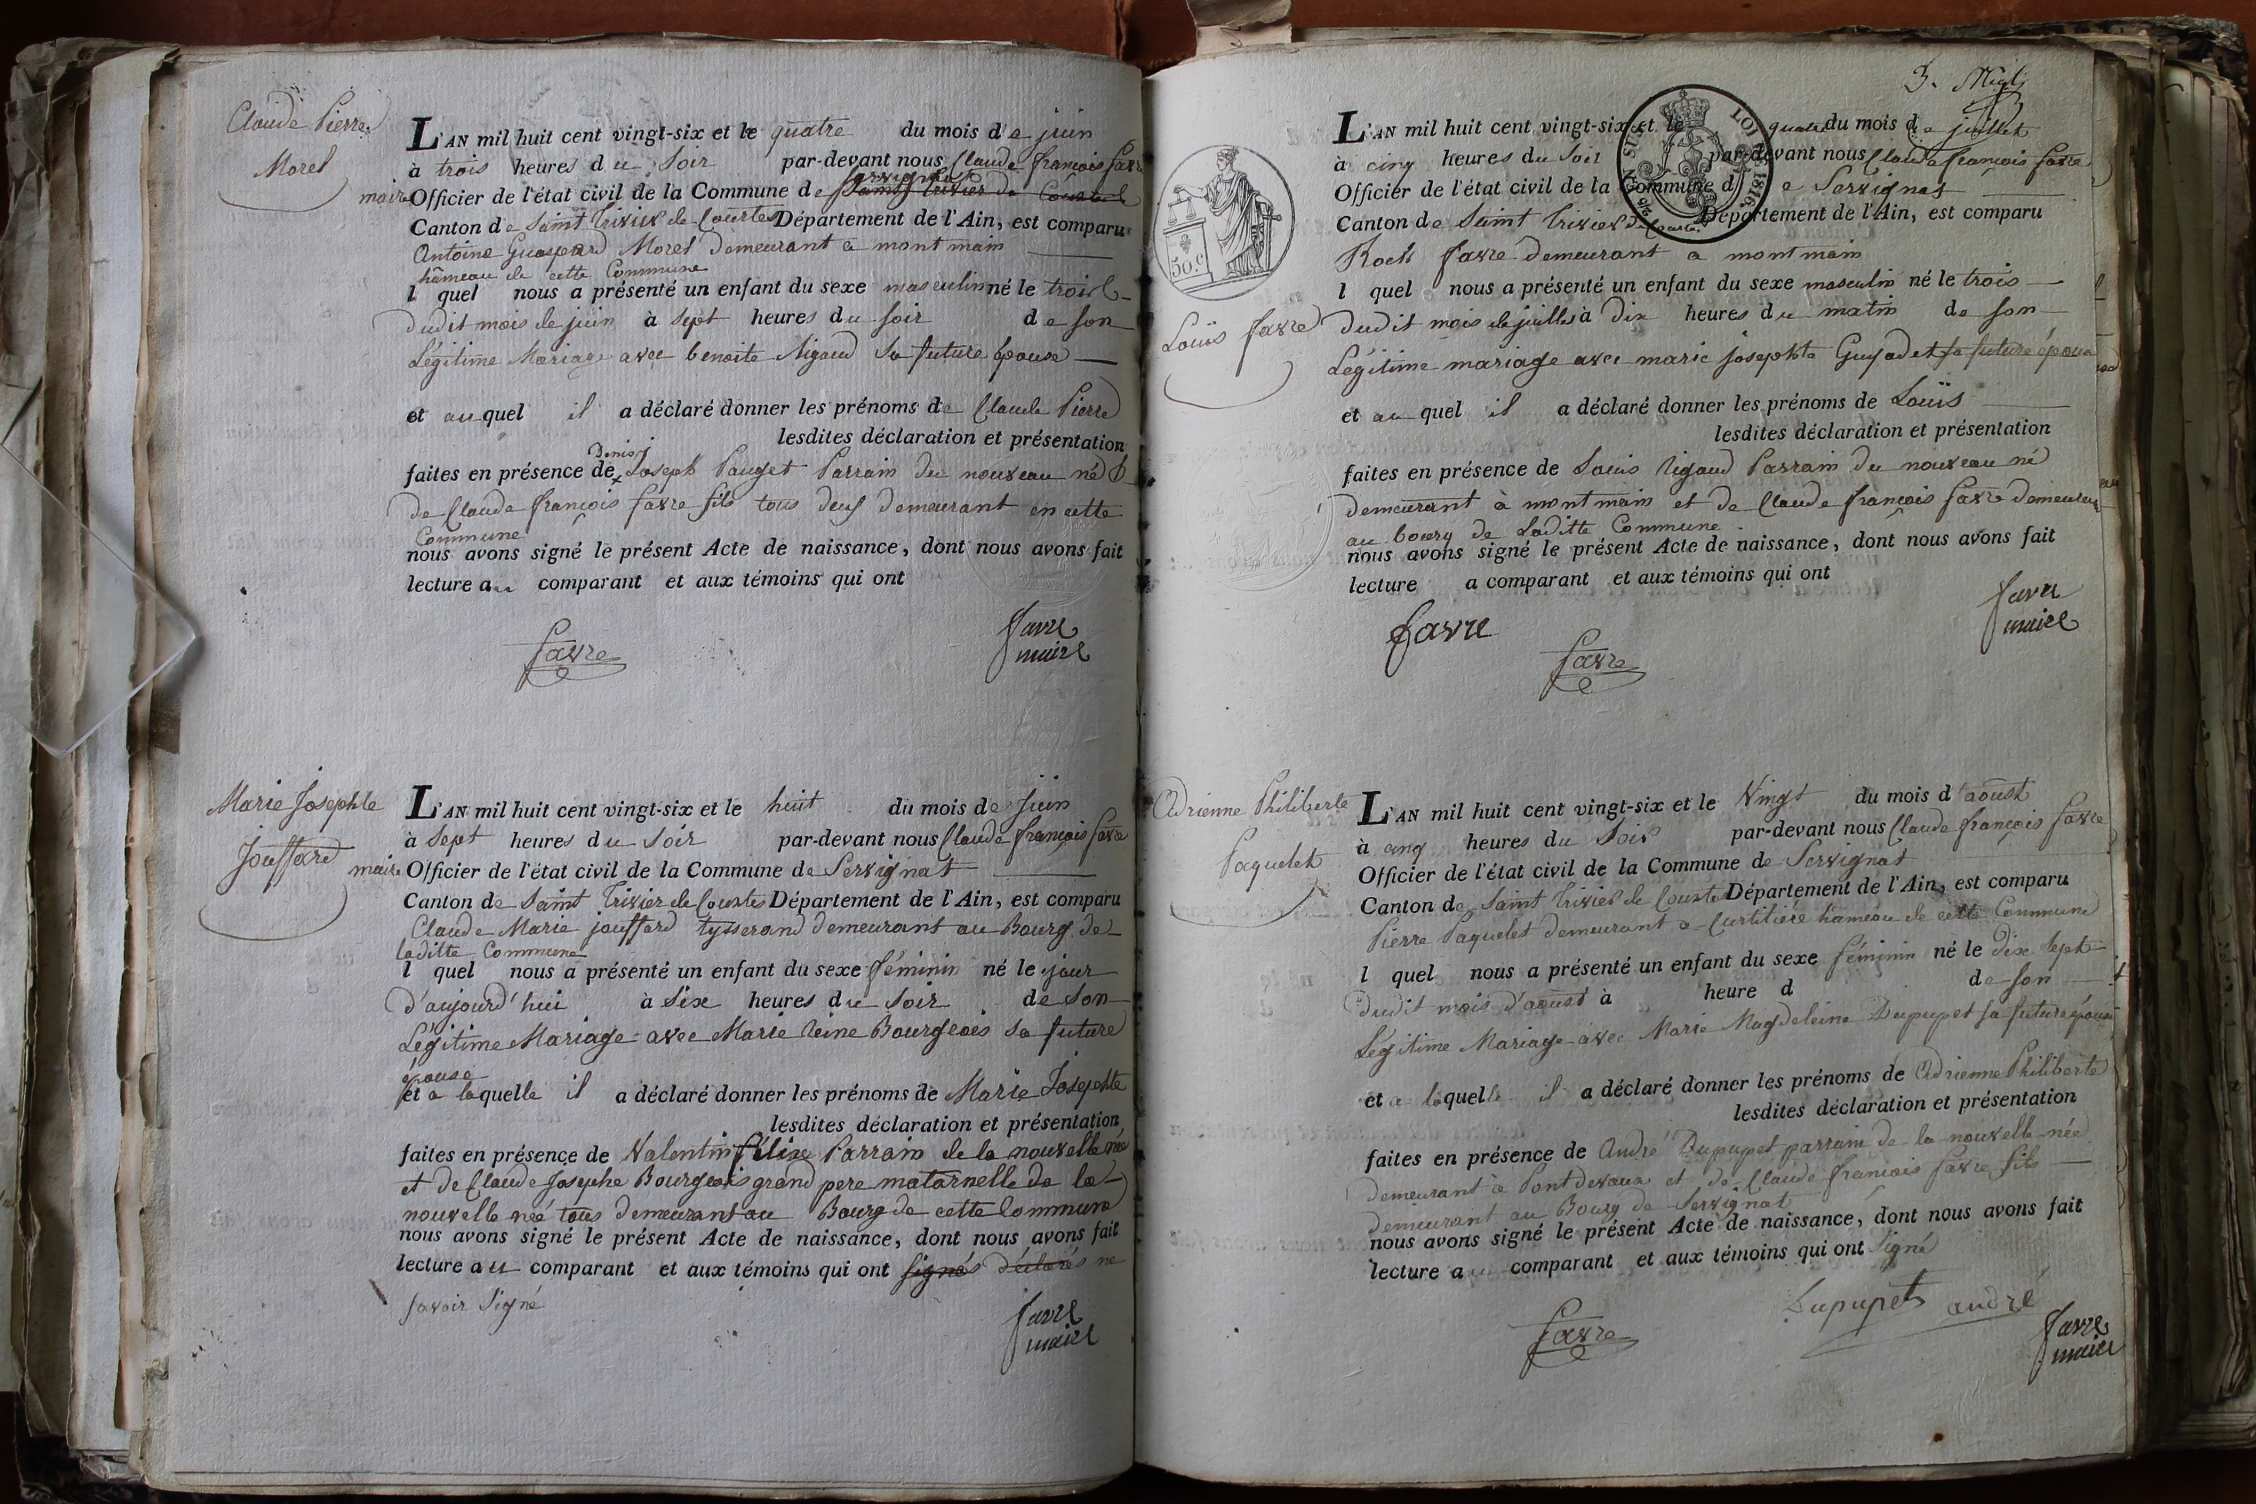 Claude Pierre
Morel
L'AN mil huit cent vingt-six et le quatre du mois de juin
à trois heures du Soir par-devant nous Claude françois favre
servignat
maire Officier de l'état civil de la Commune de Saint Trivier de Courtes
Canton de Saint Trivier de Courtes Département de l'Ain, est comparu
Antoine Guaspard Morel demeurant a montmain
hâmeau de cette Commune
l quel nous a présenté un enfant du sexe masculin né le trois
dudit mois de juin à Sept heures du soir de son
Légitime Mariage avec benoite Rigaud sa future épouse
et au quel il a déclaré donner les prénoms de Claude Pierre
lesdites déclaration et présentation
Denis
faites en présence de Joseph Pauget Parrain du nouveau né
De Claude françois favre fils tous deux demeurant en cette
Commune
nous avons signé le présent Acte de naissance, dont nous avons fait
lecture au comparant et aux témoins qui ont
favre
favre
maire
Marie Josephte
Jouffard
L'AN mil huit cent vingt-six et le huit du mois de Juin
à Sept heures du Soir par-devant nous Claude françois favre
maire Officier de l'état civil de la Commune de Servignat
Canton de Saint Trivier de Courtes Département de l'Ain, est comparu
Claude Marie jouffard tysserand demeurant au Bourg de
laditte Commune
l quel nous a présenté un enfant du sexe féminin né le jour
d'aujourd'hui à Six heures du Soir de Son
Légitime Mariage avec Marie Reine Bourgeois Sa future
épouse
et a laquelle il a déclaré donner les prénoms de Marie Josephte
lesdites déclaration et présentation
faites en présence de Valentin félix Parrain de la nouvelle née
et de Claude Josephe Bourgeois grand pere maternelle de la
nouvelle née tous demeurans au Bourg de cette Commune
nous avons signé le présent Acte de naissance, dont nous avons fait
lecture au comparant et aux témoins qui ont signés déclarés ne
savoir Signé
favre
maire
3.
LOI 1816
50.c
Louis favre
L'AN mil huit cent vingt-six et le quatre du mois de juillet
à cinq heures du Soir par-devant nous Claude françois favre
Officier de l'état civil de la Commune de Servignat
Canton de Saint Trivier de Courtes Département de l'Ain, est comparu
Roch favre demeurant a montmain
l quel nous a présenté un enfant du sexe masculin né le trois
dudit mois de juillet à Dix heures du matin de son
Légitime mariage avec marie josephte Guyadet sa future épouse
et au quel il a déclaré donner les prénoms de Louis
lesdites déclaration et présentation
faites en présence de Louis Rigaud Parrain du nouveau né
demeurant à montmain et de Claude françois favre demeurant
au bourg de Laditte Commune
nous avons signé le présent Acte de naissance, dont nous avons fait
lecture a comparant et aux témoins qui ont
favre
favre
favre
maire
Adrienne Philiberte
Paquelet
L'AN mil huit cent vingt-six et le Vingt du mois d'aoust
à cinq heures du Soir par-devant nous Claude françois favre
Officier de l'état civil de la Commune de Servignat
Canton de Saint Trivier de Courtes Département de l'Ain, est comparu
Pierre Paquelet demeurant a Curtilière hâmeau de cette Commune
l quel nous a présenté un enfant du sexe féminin né le dix Sept
dudit mois d'aoust à heure d de son
Légitime Mariage avec Marie Magdeleine Dupupet sa future épouse
et a laquelle il a déclaré donner les prénoms de Adrienne Philiberte
lesdites déclaration et présentation
faites en présence de André Dupupet parrain de la nouvelle née
demeurant à Pontdevaux et de Claude françois favre fils
demeurant au Bourg de Servignat
nous avons signé le présent Acte de naissance, dont nous avons fait
lecture au comparant et aux témoins qui ont Signé
Dupupet andré
favre
favre
maire